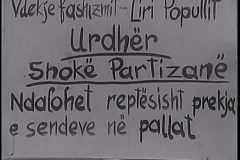 Vdekje fashizmit - Liri Popullit
Urdhër
Shokë Partizanë
Ndalohet reptësisht prekja
e sendeve në pallat